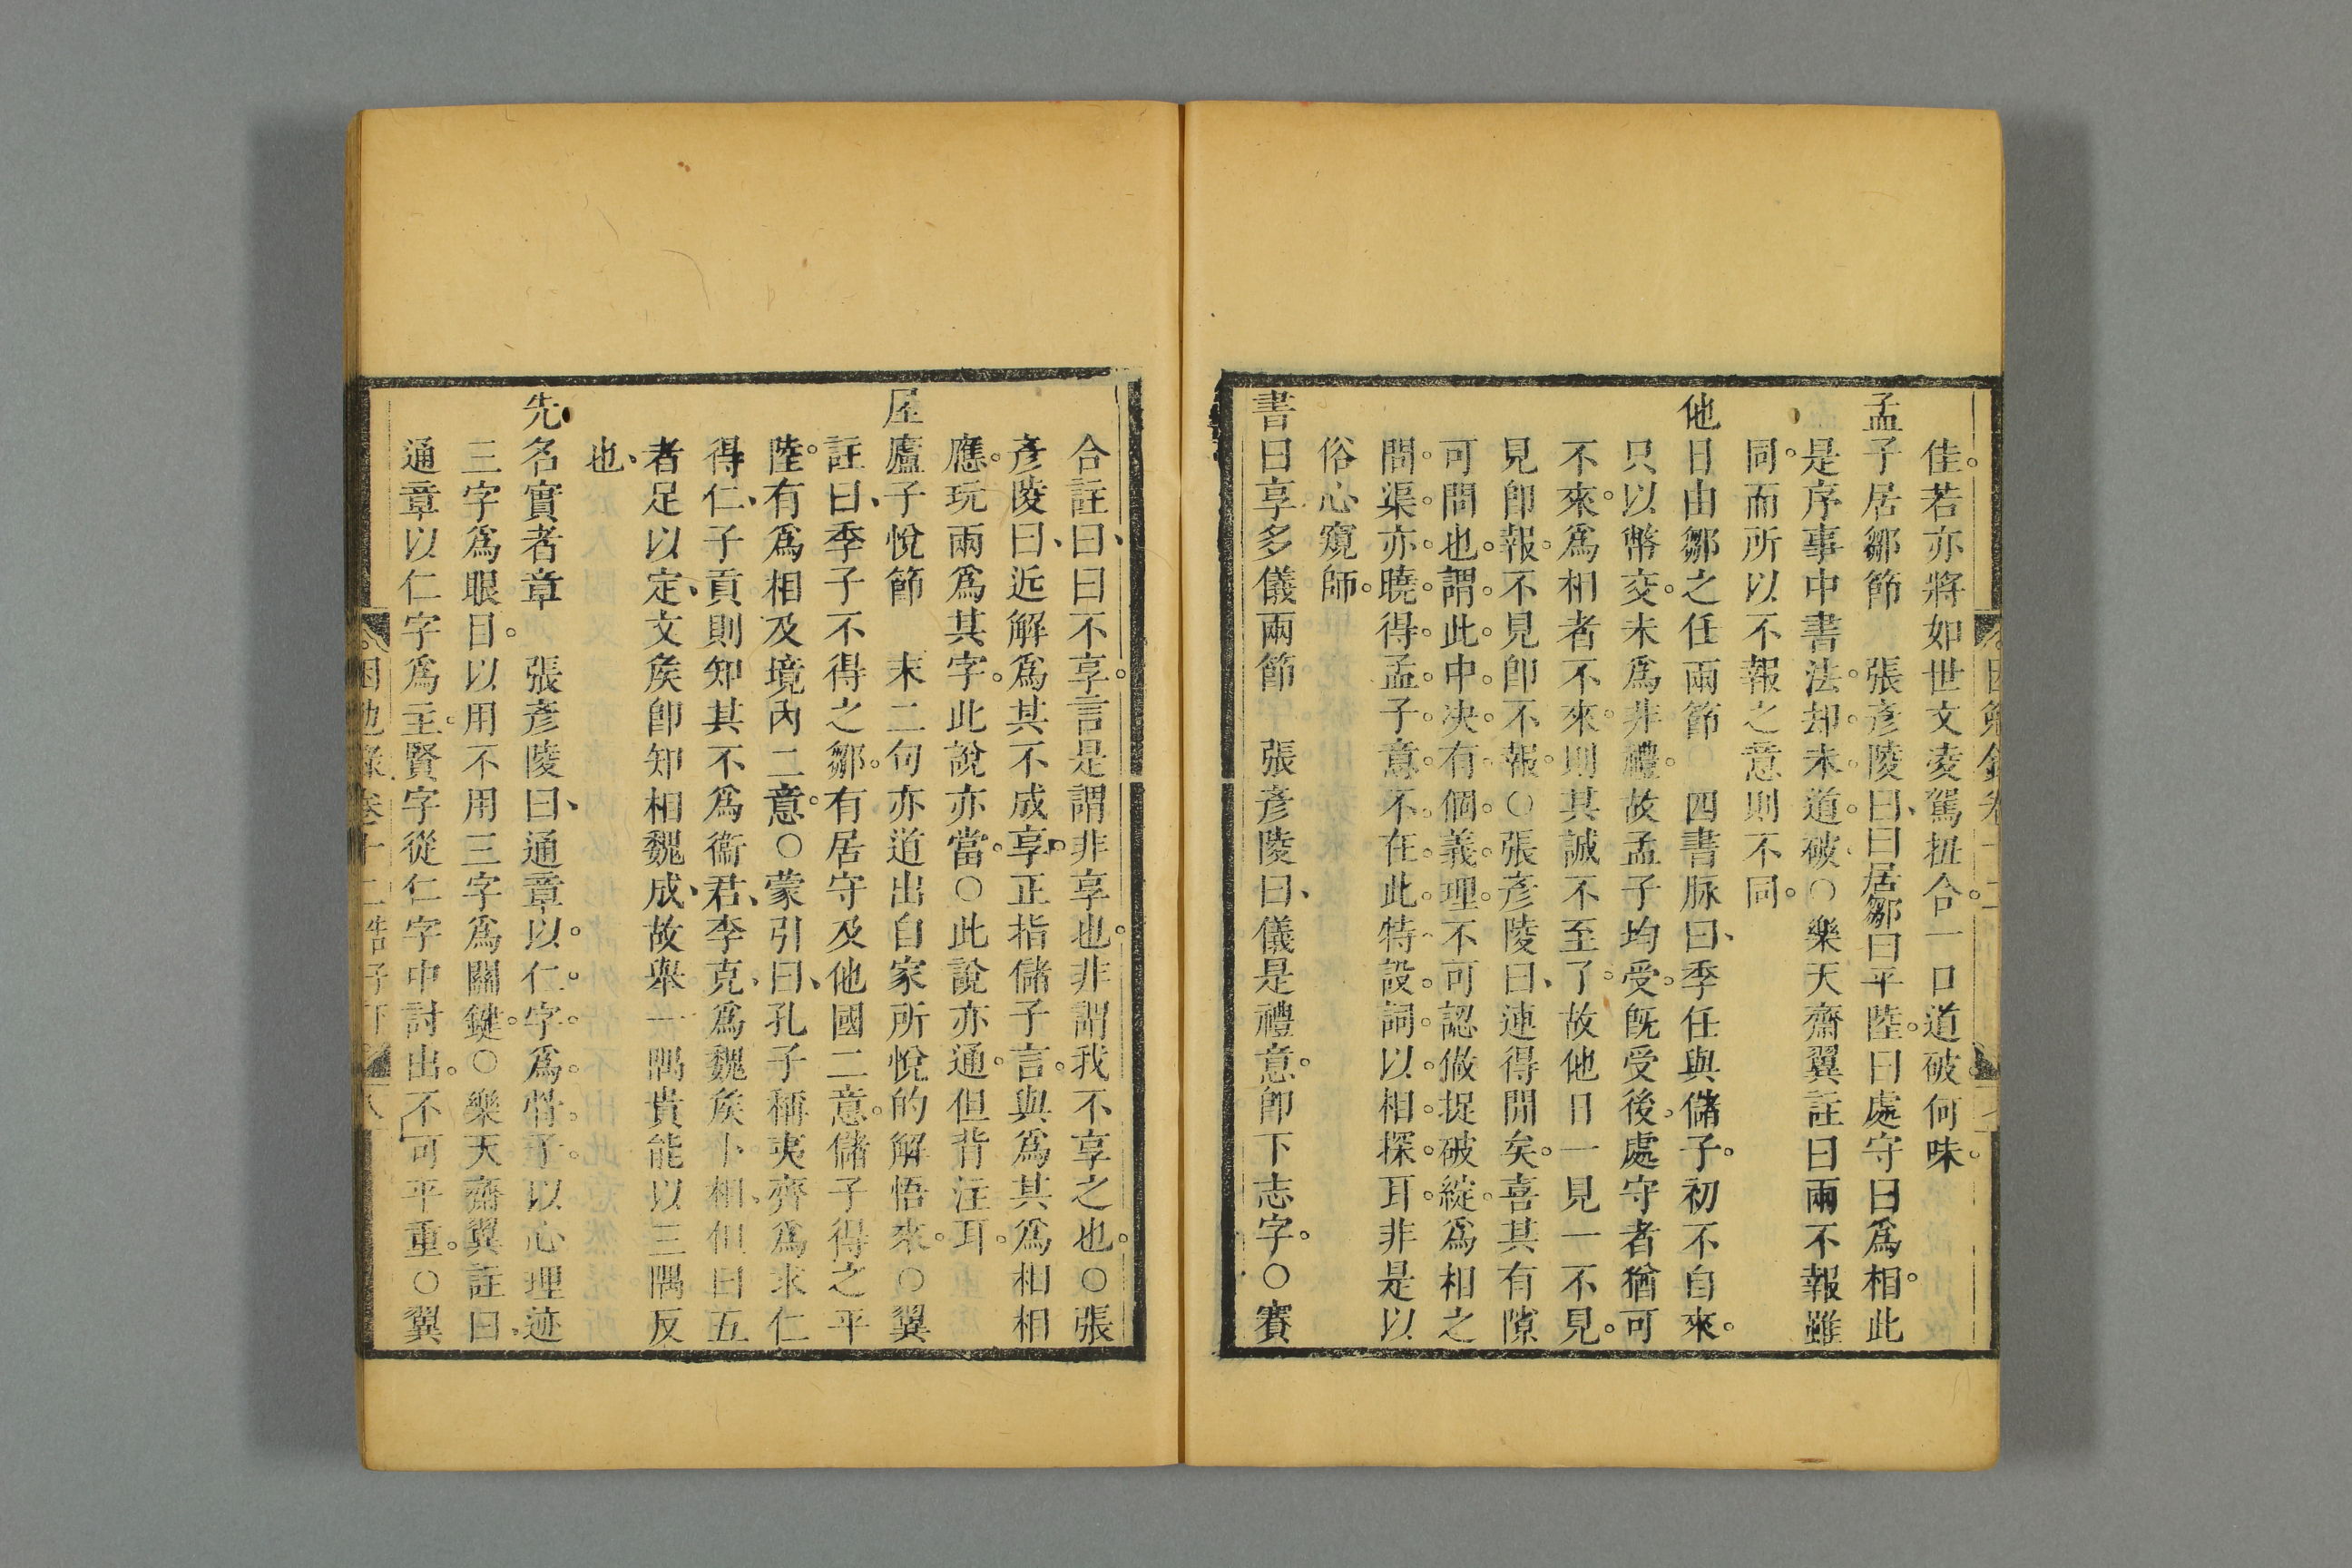 佳。若亦將如世文凌駕扭合。一口道破。何味。
孟子居鄒節　張彥陵曰、曰居鄒曰平陸。曰處守曰爲相。此
是序事中書法。却。未。道。破。○樂天齋翼註曰兩不報雖
同。而所以不報之意則不同。
他日由鄒之任兩節　四書脉曰、季任與儲子。初不自來。
只以幣交。未爲非禮。故孟子均受。旣受後。處守者猶可
不來。爲相者不來。則其誠不至了。故他日一見一不見。
見卽報。不見卽不報。○張彥陵曰、連得間矣。喜其有隙
可問也。謂。此。中。决。有。個。義。理。不可認做捉破綻。爲相之
問。渠。亦。曉。得。孟。子。意。不。在。此。特。設。詞。以。相。探。耳。非是以
俗心窺師。
書曰享多儀兩節　張彥陵曰、儀是禮意。卽下志字。○賽
合註曰、曰不享。言是謂非享也。非謂我不享之也。○張
彥陵曰、近解爲其不成享。正指儲子言。與爲其爲相相
應。玩兩爲其字。此說亦當。○此說亦通。但背注耳。
屋廬子悅節　末二句亦道出自家所悅的解悟來。○翼
註曰、季子不得之鄒。有居守及他國二意。儲子得之平
陸。有爲相及境內二意。○蒙引曰、孔子稱夷齊爲求仁
得仁、子貢則知其不爲衞君、李克、爲魏矦卜相、但曰五
者足以定、文矦卽知相魏成、故舉一隅貴能以三隅反
也、
先名實者章　張彥陵曰、通章以。仁。字。爲。骨。子。以心理迹
三字爲眼目。以用不用三字爲關鍵。○樂天齋翼註曰、
通章以仁字爲主。賢字從仁字中討出。不可平重。○翼